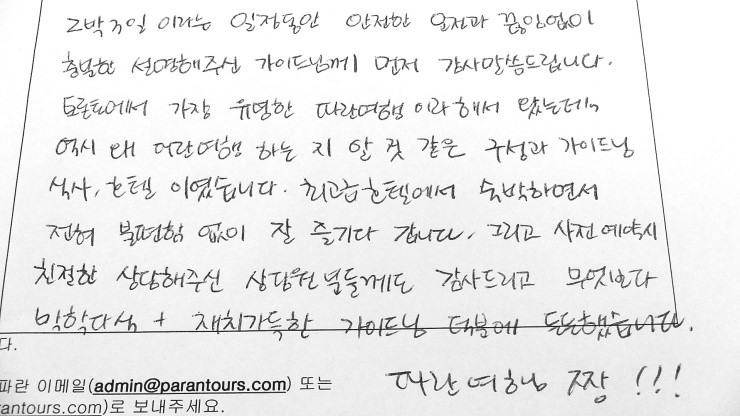 2박3일 이라는 일정동안 안전한 운전과 끊임없이
충분한 설명해주신 가이드님께 먼저 감사말씀드립니다.
토론토에서 가장 유명한 파란여행 이라해서 왔는데,
역시 왜 파란여행 하는 지 알 것 같은 구성과 가이드님
식사, 호텔 이였습니다. 최고급호텔에서 숙박하면서
전혀 불편함 없이 잘 즐기다 갑니다. 그리고 사전예약시
친절한 상담해주신 상담원님들께도 감사드리고 무엇보다
박학다식 + 재치가득한 가이드님 덕분에 든든했습니다.
다.
파란여행 짱!!!
파란 이메일(admin@parantours.com) 또는
rantours.com)로 보내주세요.